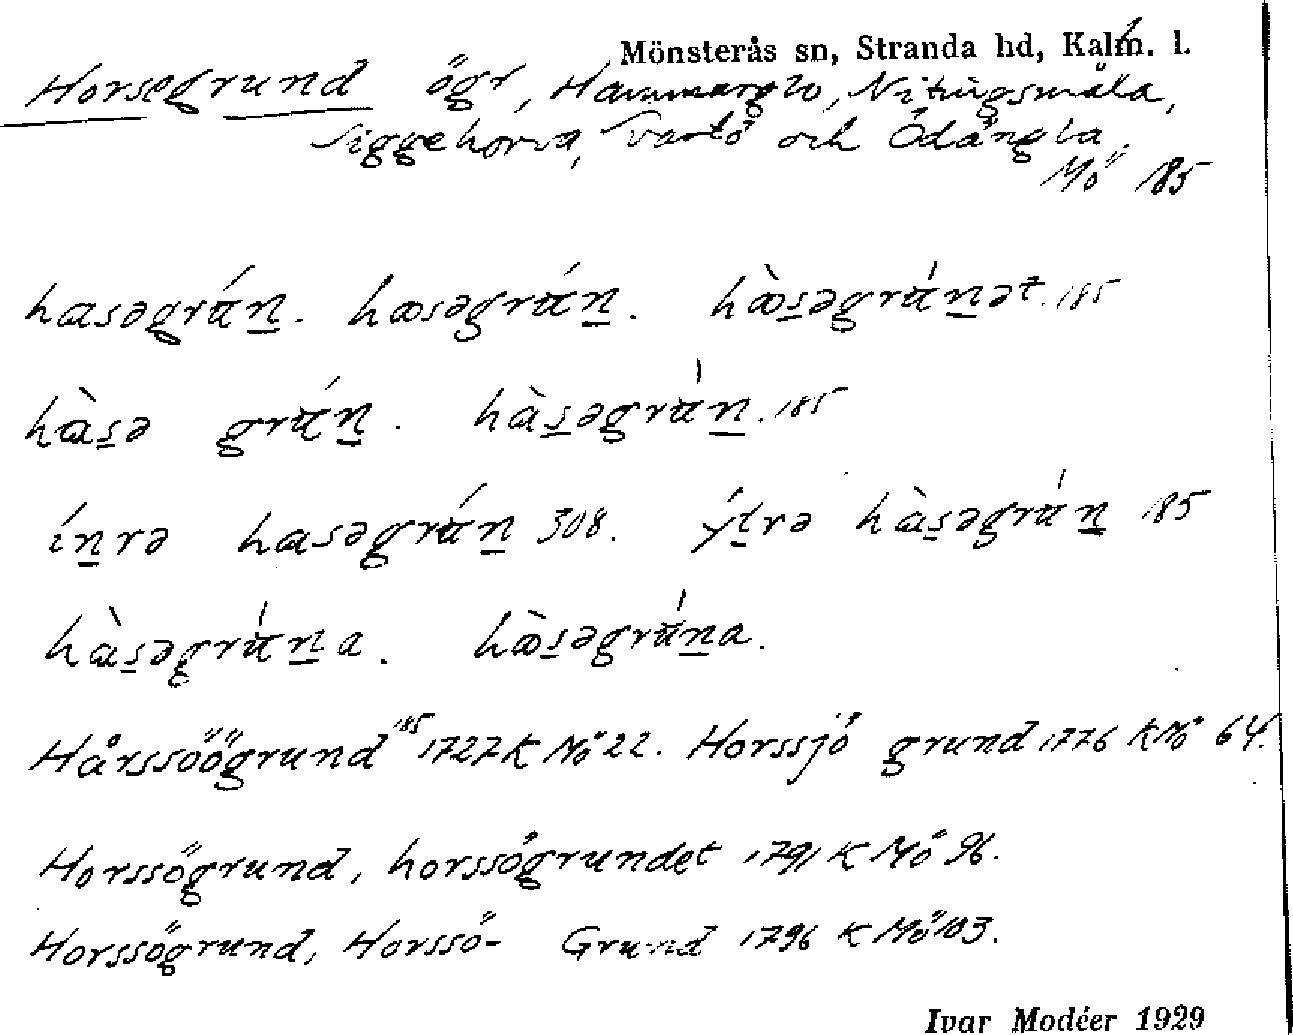 Mönsterås sn, Stranda hd, Kalm. l.
Horsegrund ögr, Hammarglo, Nitugsmåla,
Siggehorva, Vartö och Ödängla.
Mö 185
hasəgrún. hæsəgrún. hæ̀səgrúnət. 185
hàsə grún. hàsəgrún. 185
ínrə hasəgrún 308. ýtrə hàsəgrún 185
hàsəgrúna. hæ̀səgrúna.
Hårssöögrund 185 1727 K Mö 22. Horssjö grund 1776 K Mö 64.
Horssögrund, horssögrundet 1791 K Mö 96.
Horssögrund, Horssö- Grund 1796 K Mö 103.
Ivar Modéer 1929